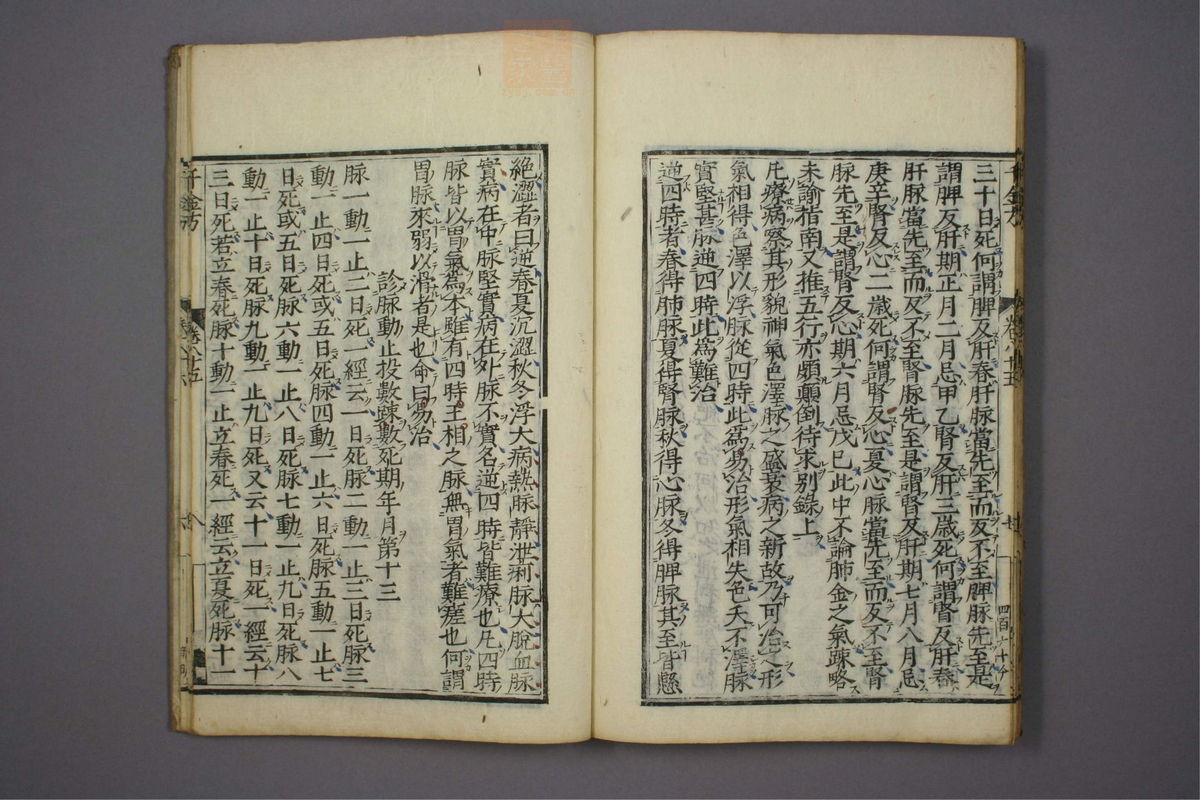 三十日死何謂脾反肝春肝脉當先至而反不至脾脉先至是
謂脾反肝期正月二月忌甲乙腎反肝三歳死何謂腎反肝春
肝脉當先至而反不至腎脉先至是謂腎反肝期七月八月忌
庚辛腎反心二歳死何謂腎反心夏心脉當先至而反不至腎
脉先至是謂腎反心期六月忌戊巳此中不論肺金之氣踈略
未諭指南又推五行亦頗顛倒待求別錄上
凡療病察其形貌神氣色澤脉之盛衰病之新故乃可治之形
氣相得色澤以浮脉從四時此爲易治形氣相失色夭不澤脉
實堅甚脉逆四時此爲難治
逆四時者春得肺脉夏得腎脉秋得心脉冬得脾脉其至皆懸
絶澀者曰逆春夏沉澀秋冬浮大病熱脉靜泄痢脉大脫血脉
實病在中脉堅實病在外脉不實名逆四時皆難療也凡四時
脉皆以胃氣爲本雖有四時王相之脉無胃氣者難瘥也何謂
胃脉來弱以滑者是也命曰易治
診脉動止投數踈數死期年月第十三
脉一動一止二日死一經云一日死脉二動一止三日死脉三
動一止四日死或五日死脉四動一止六日死脉五動一止七
日死或五日死脉六動一止八日死脉七動一止九日死脉八
動一止十日死脉九動一止九日死又云十一日死一經云十
三日死若立春死脉十動一止立春死一經云立夏死脉十一
千金方